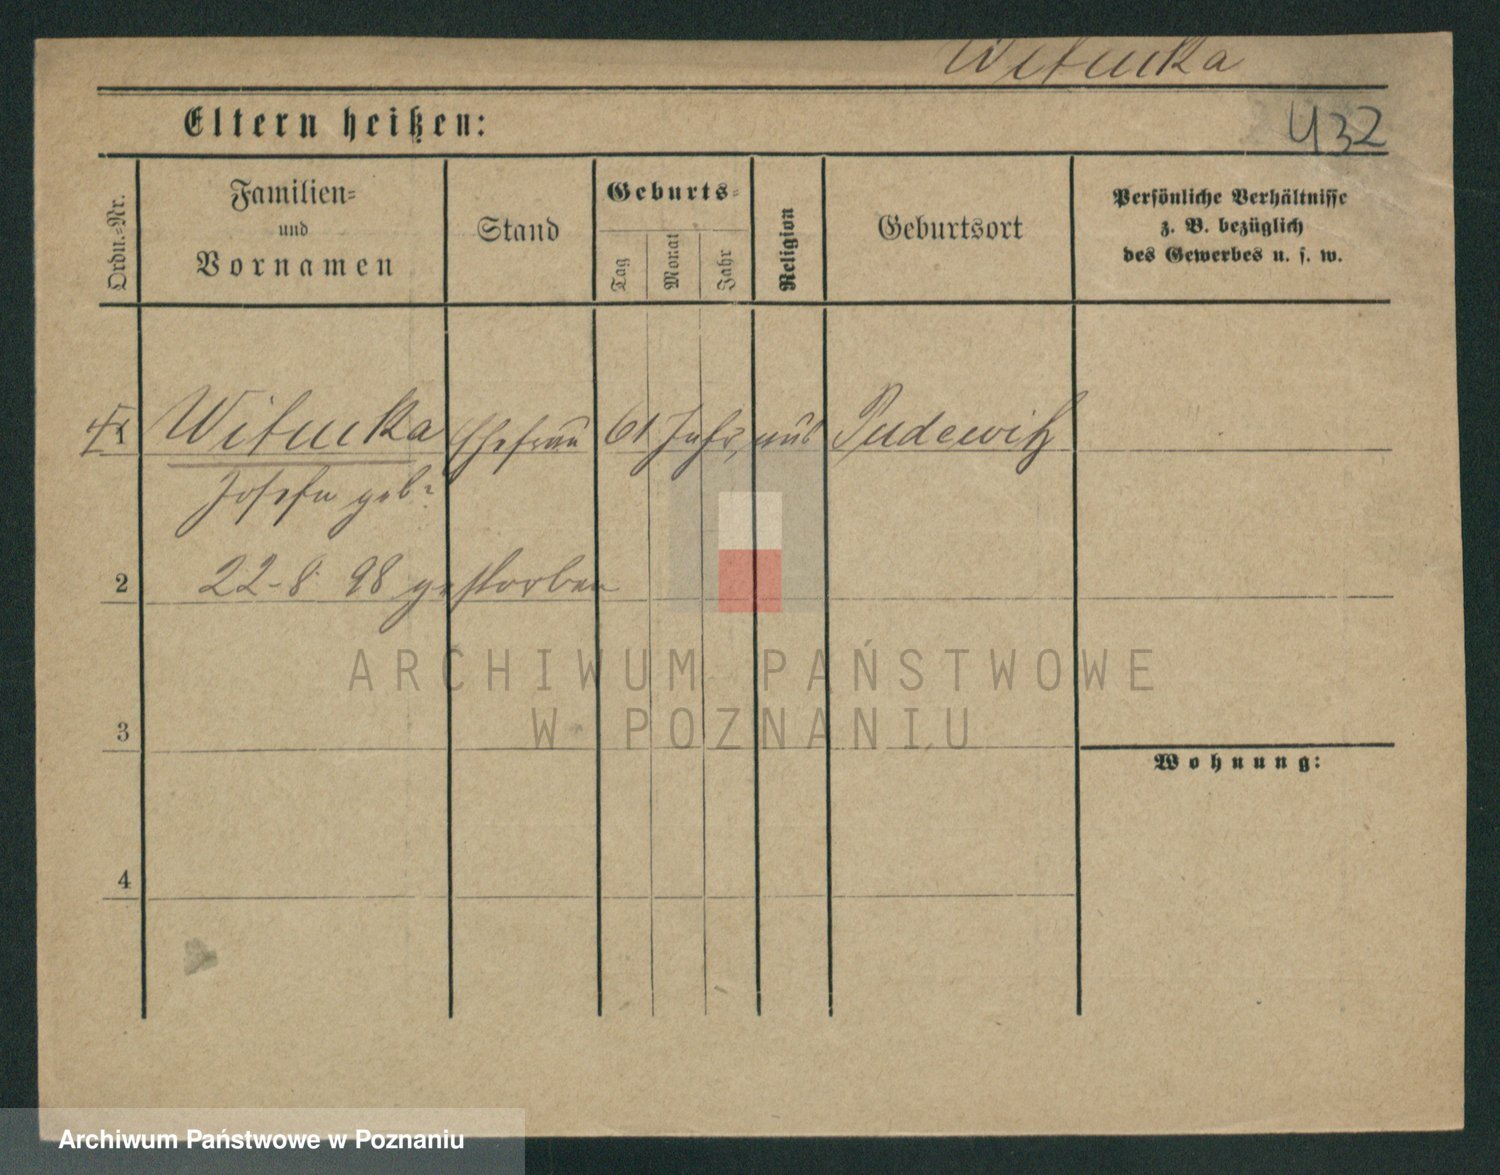 Witucka
Eltern heißen:
432
Ordn.-Nr.
Familien-
und
Vornamen
Stand
Geburts-
Tag
Monat
Jahr
Religion
Geburtsort
Persönliche Verhältnisse
z. B. bezüglich
des Gewerbes u. s. w.
Witucka Ehefrau 61 Jahr, aus Pudewitz
Josefa geb.
2 22-8 98 gestorben
ARCHIWUM PAŃSTWOWE
W POZNANIU
3
Wohnung:
4
Archiwum Państwowe w Poznaniu